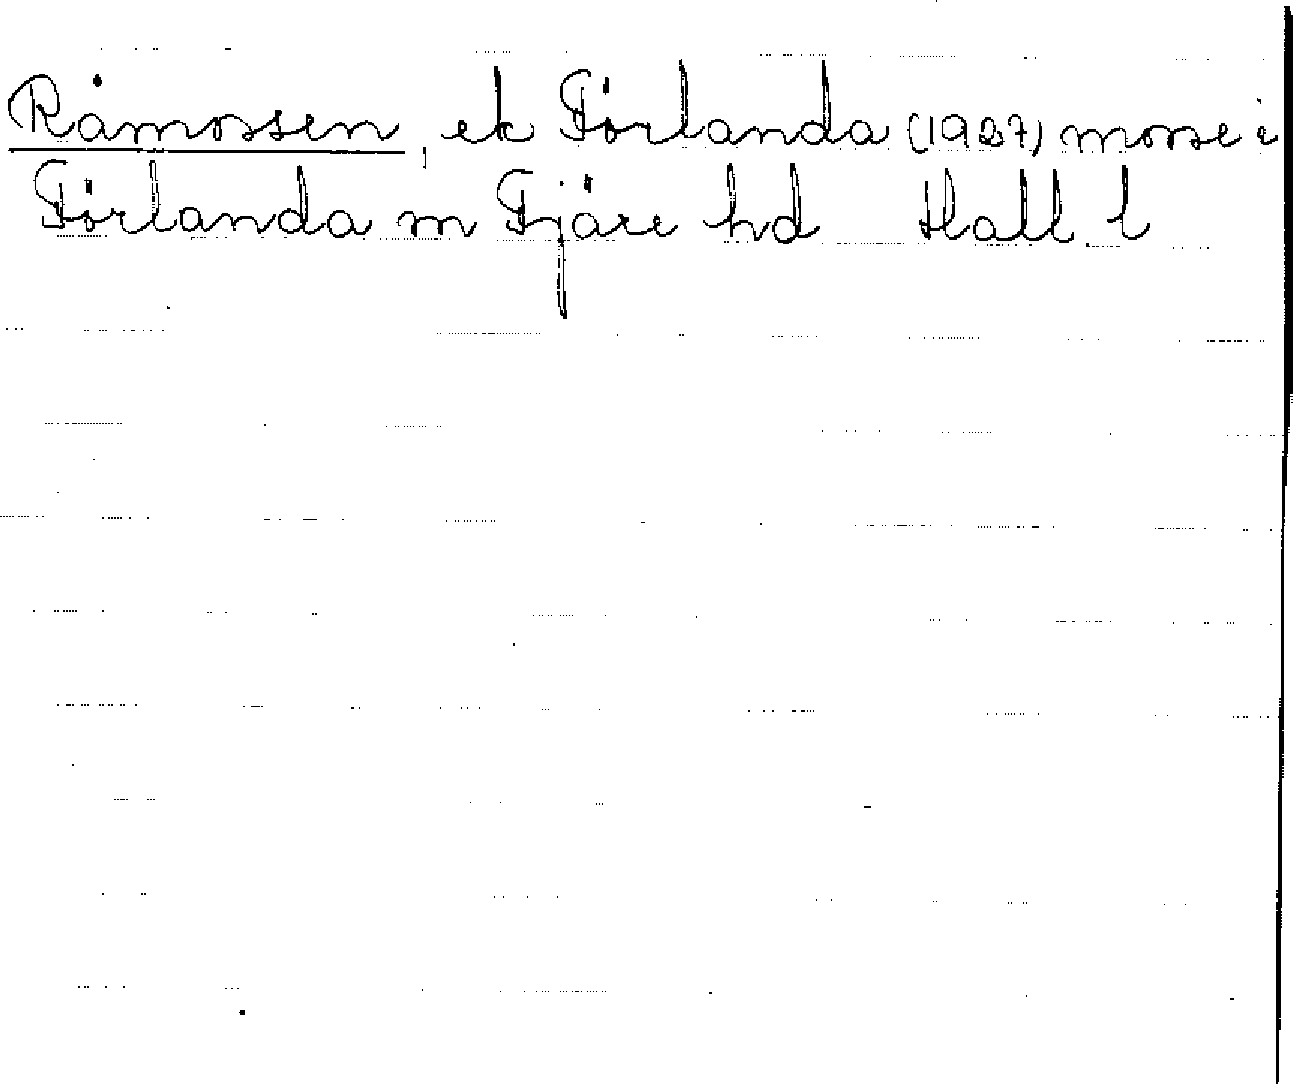 Råmossen, ek Förlanda (1927) mosse i
Förlanda m Fjäre hd Hall l